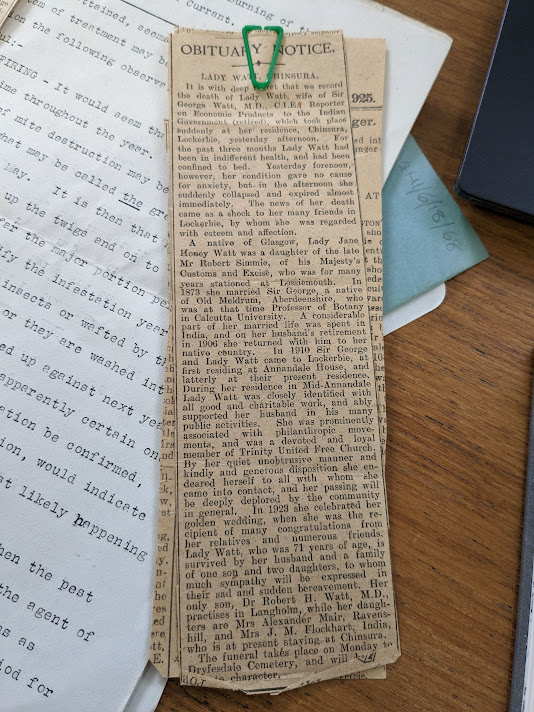 OBITUARY NOTICE.
LADY WATT, CHINSURA.
It is with deep regret that we record
the death of Lady Watt, wife of Sir
George Watt, M.D., C.I.E., Reporter
on Economic Products to the Indian
Government (retired), which took place
suddenly at her residence, Chinsura,
Lockerbie, yesterday afternoon. For
the past three months Lady Watt had
been in indifferent health, and had been
confined to bed. Yesterday forenoon,
however, her condition gave no cause
for anxiety, but in the afternoon she
suddenly collapsed and expired almost
immediately. The news of her death
came as a shock to her many friends in
Lockerbie, by whom she was regarded
with esteem and affection.
A native of Glasgow, Lady Jane
Honey Watt was a daughter of the late
Mr Robert Simmie, of his Majesty's
Customs and Excise, who was for many
years stationed at Lossiemouth. In
1873 she married Sir George, a native
of Old Meldrum, Aberdeenshire, who
was at that time Professor of Botany
in Calcutta University. A considerable
part of her married life was spent in
India, and on her husband's retirement
in 1906 she returned with him to her
native country. In 1910 Sir George
and Lady Watt came to Lockerbie, at
first residing at Annandale House, and
latterly at their present residence.
During her residence in Mid-Annandale
Lady Watt was closely identified with
all good and charitable work, and ably
supported her husband in his many
public activities. She was prominently
associated with philanthropic move-
ments, and was a devoted and loyal
member of Trinity United Free Church.
By her quiet unobtrusive manner and
kindly and generous disposition she en-
deared herself to all with whom she
came into contact, and her passing will
be deeply deplored by the community
in general. In 1923 she celebrated her
golden wedding, when she was the re-
cipient of many congratulations from
her relatives and numerous friends.
Lady Watt, who was 71 years of age, is
survived by her husband and a family
of one son and two daughters, to whom
much sympathy will be expressed in
their sad and sudden bereavement. Her
only son, Dr Robert H. Watt, M.D.,
practises in Langholm, while her daugh-
ters are Mrs Alexander Mair, Ravens-
hill, and Mrs J. M. Flockhart, India,
who is at present staying at Chinsura.
The funeral takes place on Monday to
Dryfesdale Cemetery, and will
character.
1925.
burning of the
Current.
attained, seems
of treatment may be
on the following observa
FIRING - It would seem the
time throughout the year.
of mite destruction may be
what may be called the gre
hay. It is then that
up the twigs and on to
the major portion
the infestation year
insects or wafted by th
or they are washed int
up against next ye
apparently certain on
be confirmed,
would indicate
likely happening
when the pest
the agent of
as
for